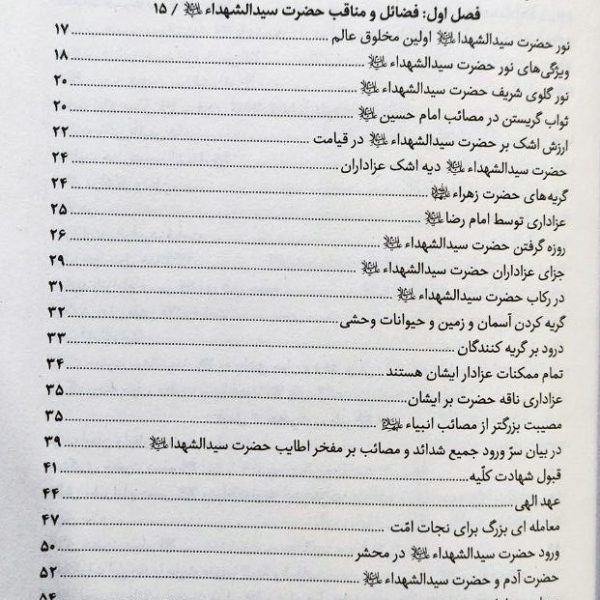 فصل اول: فضائل و مناقب حضرت سیدالشهداء / ۱۵
نور حضرت سیدالشهدا اولین مخلوق عالم ۱۷
ویژگی‌های نور حضرت سیدالشهداء ۱۸
نور گلوی شریف حضرت سیدالشهداء ۲۰
ثواب گریستن در مصائب امام حسین ۲۰
ارزش اشک بر حضرت سیدالشهداء در قیامت ۲۲
حضرت سیدالشهداء دیه اشک عزاداران ۲۴
گریه‌های حضرت زهراء ۲۴
عزاداری توسط امام رضا ۲۵
روزه گرفتن حضرت سیدالشهداء ۲۶
جزای عزاداران حضرت سیدالشهداء ۲۹
در رکاب حضرت سیدالشهداء ۳۱
گریه کردن آسمان و زمین و حیوانات وحشی ۳۲
درود بر گریه کنندگان ۳۳
تمام ممکنات عزادار ایشان هستند ۳۴
عزاداری ناقه حضرت بر ایشان ۳۵
مصیبت بزرگتر از مصائب انبیاء ۳۵
در بیان سرّ ورود جمیع شدائد و مصائب بر مفخر اطایب حضرت سیدالشهدا ۳۹
قبول شهادت کلّیه ۴۱
عهد الهی ۴۴
معامله ای بزرگ برای نجات امّت ۴۷
ورود حضرت سیدالشهداء در محشر ۵۰
حضرت آدم و حضرت سیدالشهداء ۵۲
۵۴